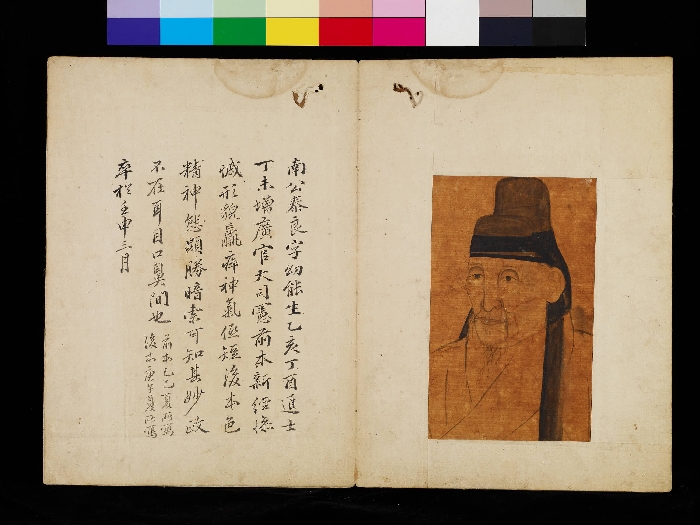 南公泰良字幼能生乙亥丁酉進士
丁未增廣官大司憲前本新經慽
慽形貌羸瘁神氣傴短後本色
精神態頗勝暗索可知其妙政
不在耳目口鼻間也 前本乙巳夏所寫
後本庚午夏所寫
卒於壬申三月